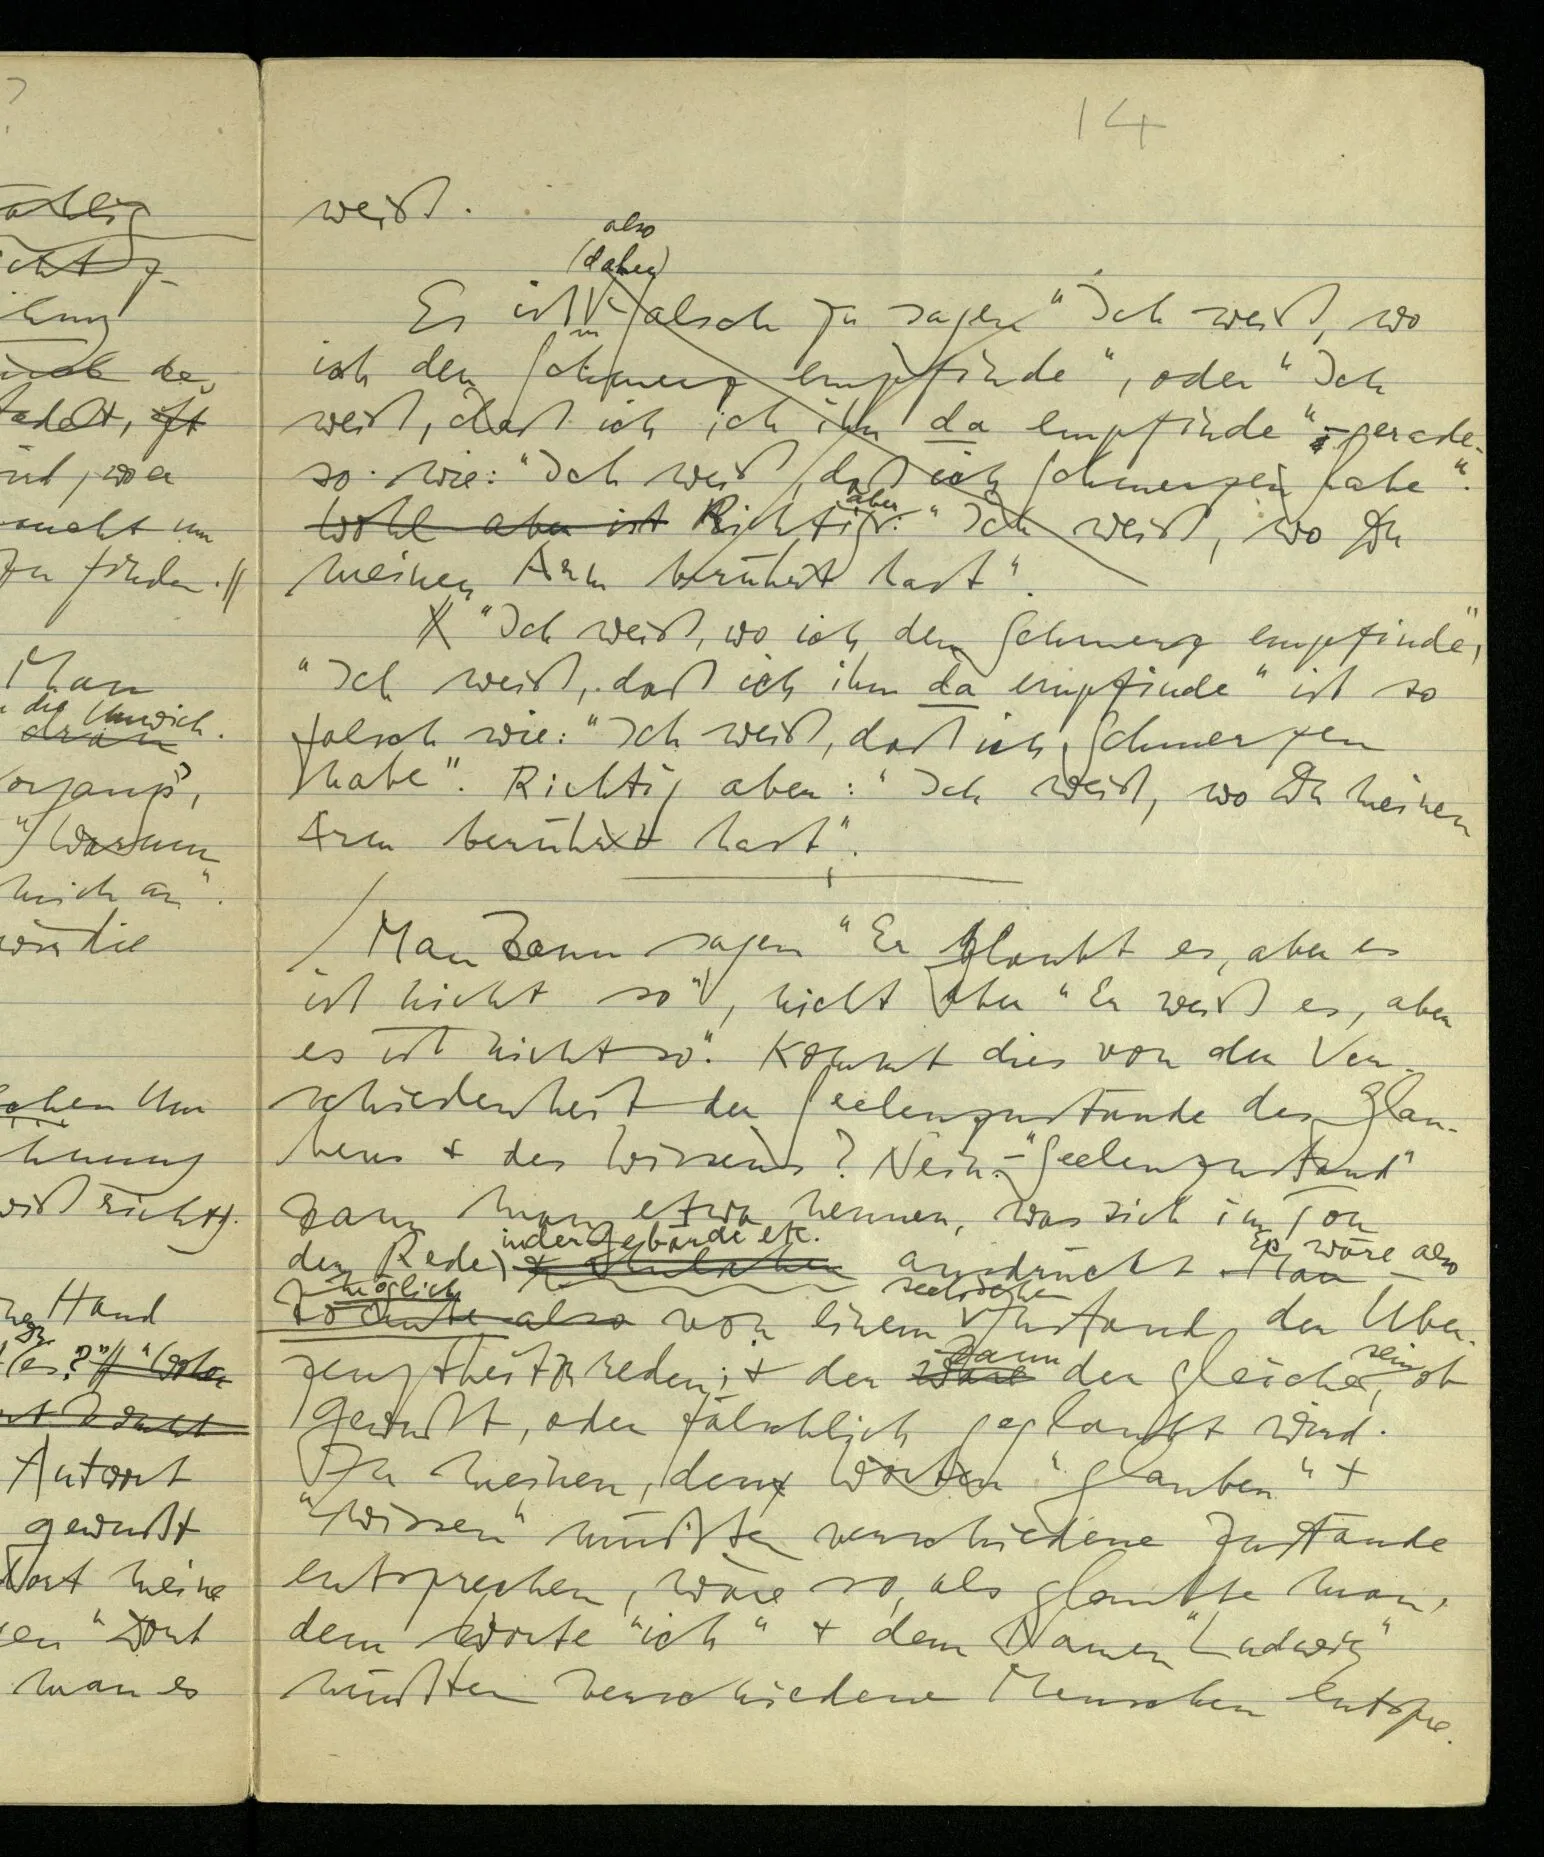 14
weiß.
also
(daher)
Es ist falsch zu sagen "Ich weiß, wo
ich den Schmerz empfinde", oder "Ich
weiß, daß ich ich ihn da empfinde" – gerade-
so wie: "Ich weiß, daß ich Schmerzen habe".
Wohl aber ist Richtig aber: "Ich weiß, wo Du
meinen Arm berührt hast".
"Ich weiß, wo ich den Schmerz empfinde",
"Ich weiß, daß ich ihn da empfinde" ist so
falsch wie: "Ich weiß, daß ich Schmerzen
habe". Richtig aber: "Ich weiß, wo Du meinen
Arm berührt hast".
/ Man kann sagen "Er glaubt es, aber es
ist nicht so", nicht aber "Er weiß es, aber
es ist nicht so". Kommt dies von der Ver-
schiedenheit der Seelenzustände des Glau-
bens + des Wissens? Nein. – "Seelenzustand"
kann man etwa nennen, was sich im Ton
in der Gebärde etc.
der Rede, + ähnlichem ausdrückt. Man Es wäre also
möglich seelischen
könnte also von einem Zustand der Über-
zeugtheit zu reden; + der wäre kann der gleiche sein, ob
gewußt, oder fälschlich geglaubt wird.
Zu meinen, den Worten "glauben" +
"wissen" müßten verschiedene Zustände
entsprechen, wäre so, als glaubte man,
dem Worte "ich" + dem Namen "Ludwig"
müßten verschiedene Menschen entspre-
Man
die Unwich.
dran
"Warum
mich an".
würdie
Hand
es?" "Woher
Antwort
gewußt
Wort meine
Wort
man es
zu finden.
macht um
wird, wer